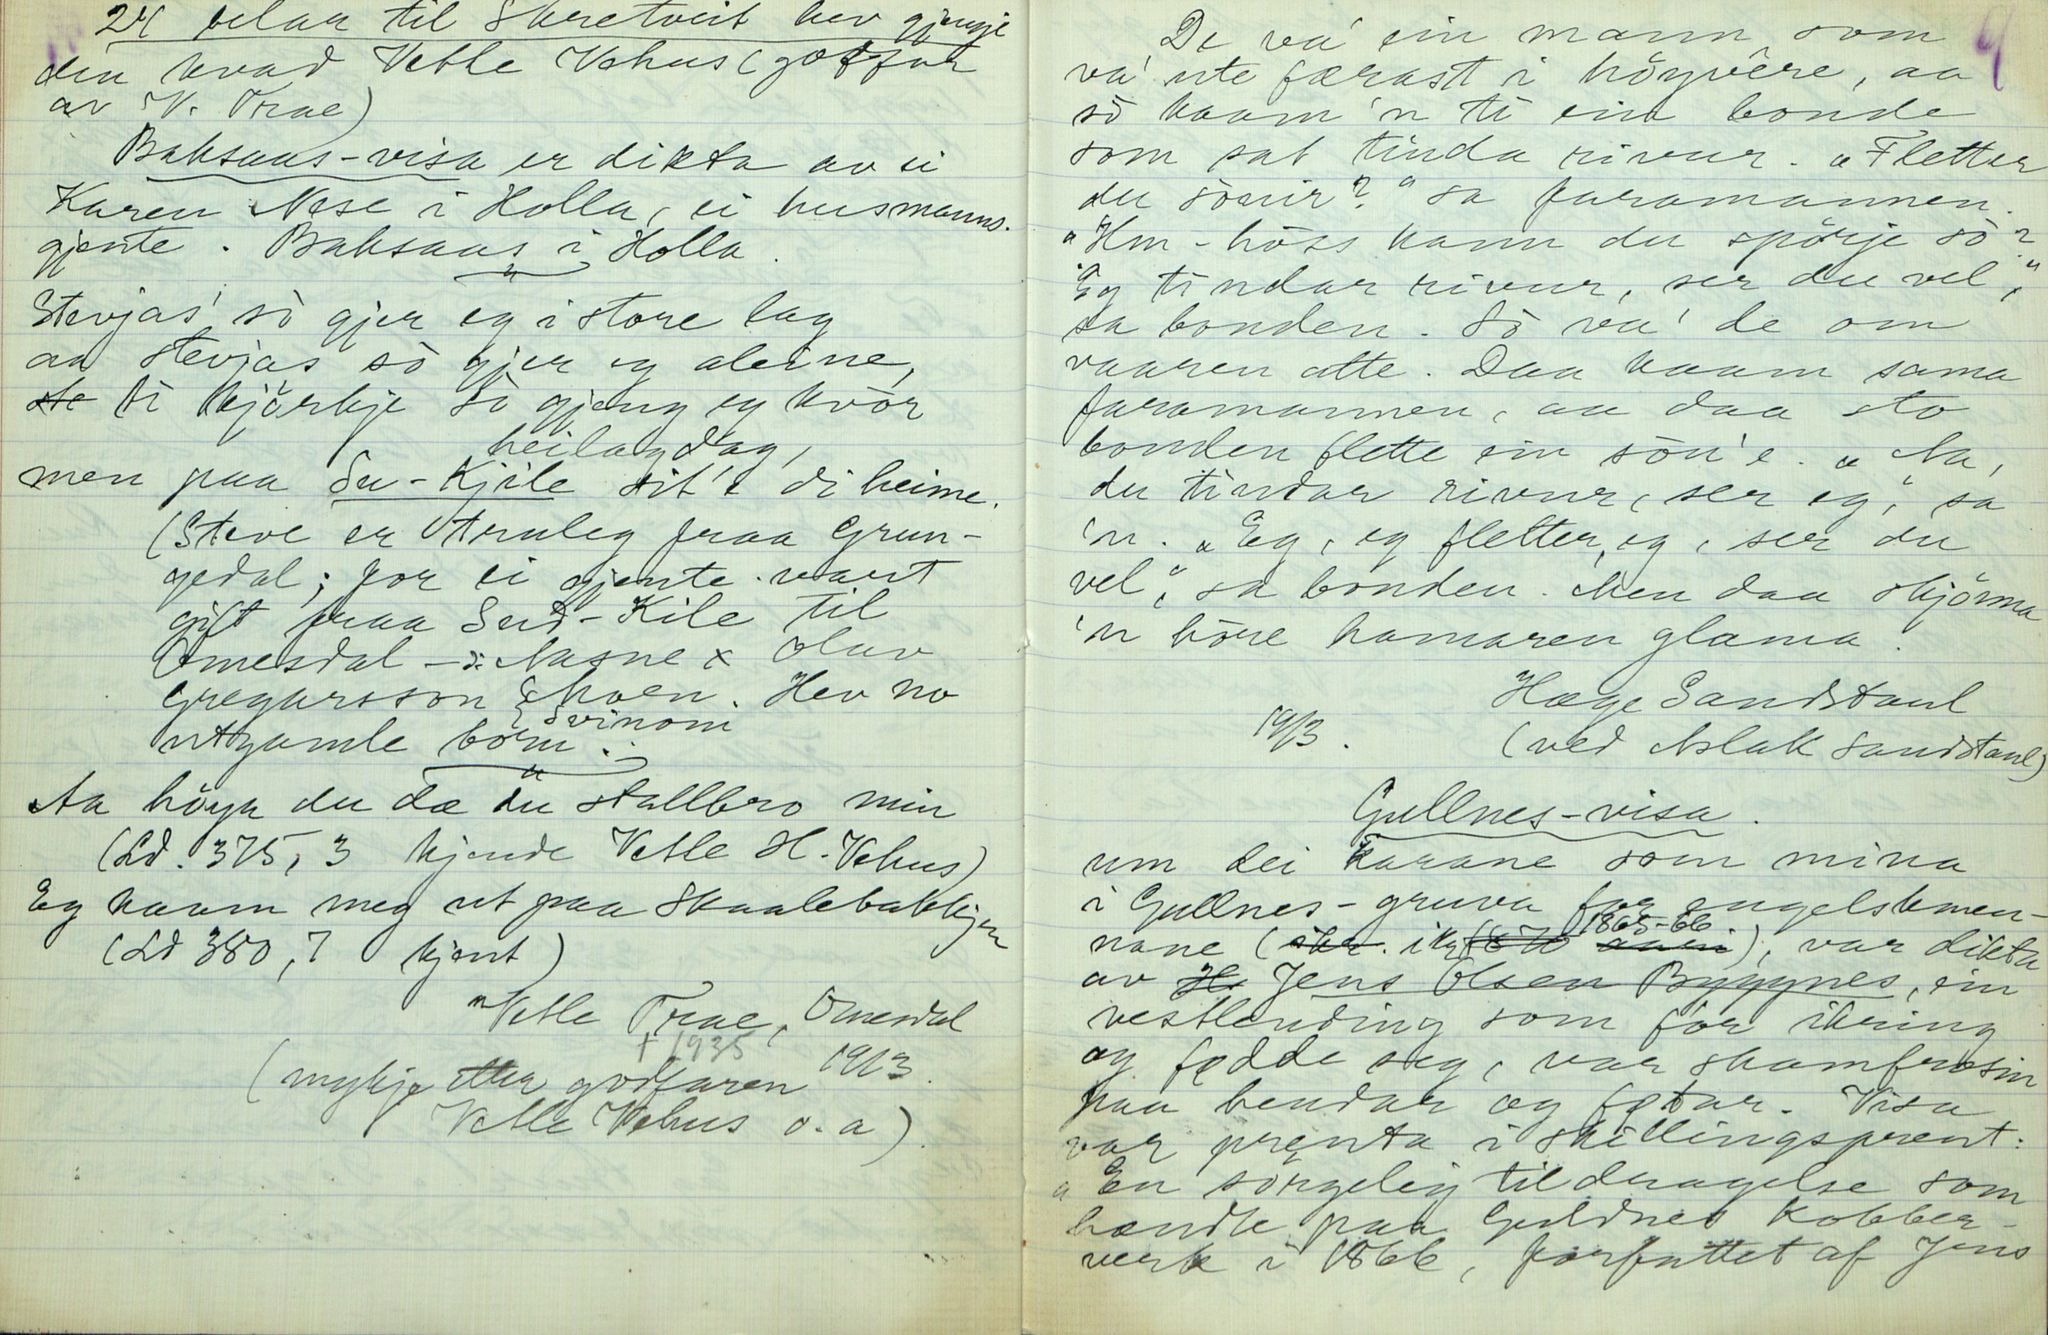 24 belar til Skretveit hev gjengje
den kvad Vetle Vehus (goffar
av V. Trae)
Baksaas-visa er dikta av ei
Karen Nese i Holla, ei husmanns-
gjente. Baksaas i Holla.
Stevjas' sò gjer eg i store lag
aa stevjas sò gjer eg aleine,
ti kjörkje sò gjeng eg kvòr
heilagdag,
men paa Su-Kjile sit'e di heime.
(Steve er truleg fraa Grun-
gedal; for ei gjente vart
gift fraa Sud-Kile til
Omesdal - ɔ: Aasne x Olav
Gregarsson Moen. Hev no
Svinom
utgamle born.
Aa höyr du dæ du stallbro min
(Ld. 375, 3 kjende Vetle H. Vehus)
Eg kaam meg ut paa Skaalebakkjen
(Ld 380, 7 kjent)
Vetle Trae, Omesdal
† 1935
(mykje etter godfaren 19/3.
Vetle Vehus o. a).
De va' ein mann som
va' ute færast i höyvêre, aa
sò kaam 'n ti ein bonde
som sat tinda rivur. „Fletter
du sònir?“ sa faramannen.
„Hm - höss kann du spörje sò?
Eg tindar rivur, ser du vel,“
sa bonden. Sò va' de om
vaaren atte. Daa kaam sama
faramannen, aa daa sto
bonden flette ein sòn'e. „Aa,
du tindar rivur, ser eg“, sa
'n. „Eg, eg fletter, eg, ser du
vel“, sa bonden. Men daa skjöna
'n böre hamaren glama.
Hæge Sandstaul
19/3. (ved Aslak Sandstaul)
Gullnes-visa.
um dei karane som mina
i Gullnes-gruva for engelskmen-
1865-66
nane (ikr. i), var dikta
av Jens Olsen Byggnes, ein
vestlending som fór ikring
og fødde seg, var skamfrosin
paa hendar og føtar. Visa
var prenta i skillingsprent:
„En sörgelig tildragelse som
hændte paa Guldnes Kobber-
verk i 1866, forfattet af Jens